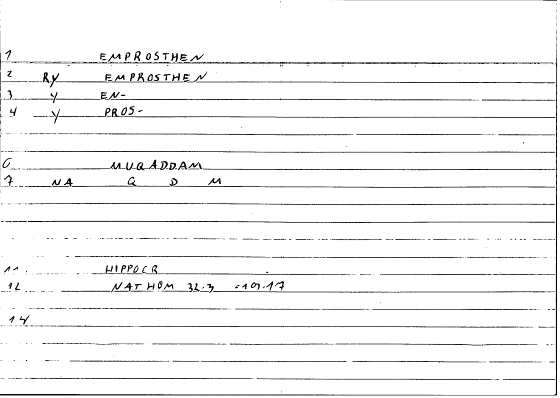 1 EMPROSTHEN
2 RY EMPROSTHEN
3 Y EN-
4 Y PROS-
6 MUQADDAM
7 NA Q D M
11 HIPPOCR
12 NAT HOM 32.3 -109.17
14